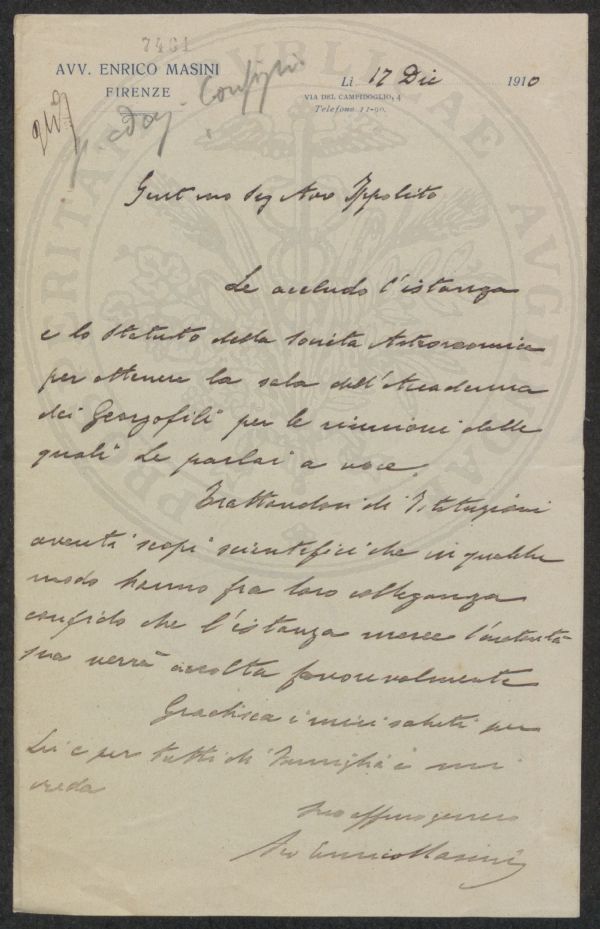 7461
AVV. ENRICO MASINI
FIRENZE
Consiglio
Lì 17 Dic 1910
VIA DEL CAMPIDOGLIO, 4
Telefono 11-90.
PROSPERITATI PUBLICAE AUGENDAE
Gent mo Sig Avv Ippolito
Le accludo l'istanza
e lo Statuto della Società Astronomica
per ottenere la sala dell'Accademia
dei Georgofili per le riunioni delle
quali Le parlai a voce.
Trattandosi di Istituzioni
aventi scopi scientifici che in qualche
modo hanno fra loro colleganza
confido che l'istanza merce l'autorità
sua verrà accolta favorevolmente
Gradisca i miei saluti per
Lei e per tutti di Famiglia e mi
creda
Suo affmo genero
Avv Enrico Masini